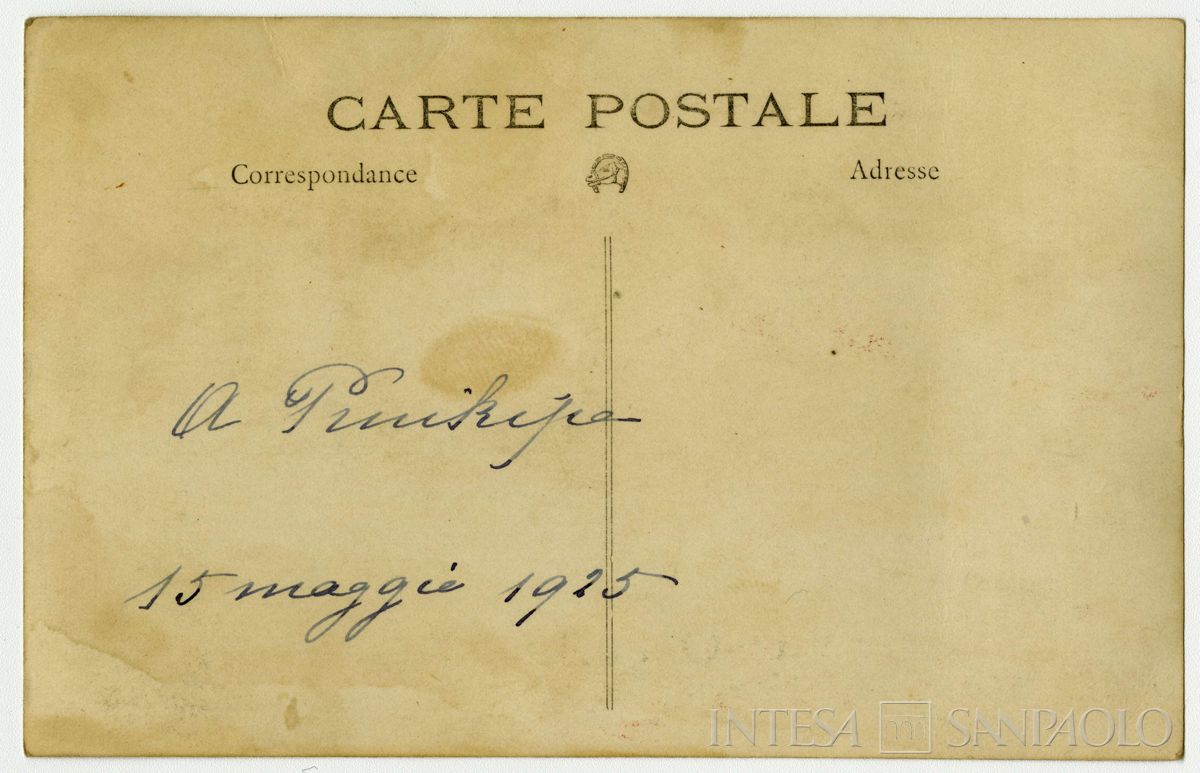 CARTE POSTALE
Correspondance
Adresse
A Prinkipo
15 maggio 1925
INTESA SANPAOLO